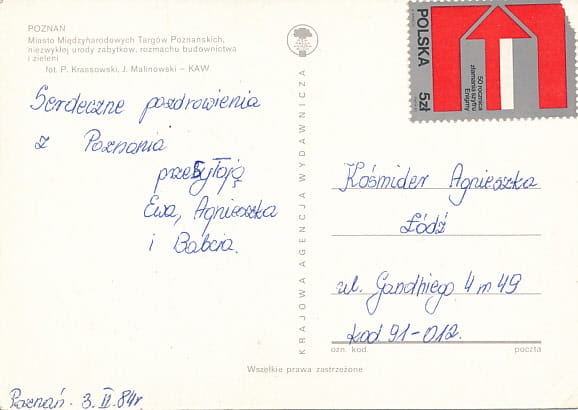 POZNAŃ
Miasto Międzynarodowych Targów Poznańskich,
niezwykłej urody zabytków, rozmachu budownictwa
i zieleni
fot. P. Krassowski, J. Malinowski – KAW
Serdeczne pozdrowienia
z Poznania
przesyłają
Ewa, Agnieszka
i Babcia.
Poznań. 3.II.84r
KRAJOWA AGENCJA WYDAWNICZA
POLSKA 5zł
50 rocznica
złamania szyfru
Enigmy
Kośmider Agnieszka
Łódź
ul. Gandhiego 4 m 49
kod 91-012.
ozn. kod. poczta
Wszelkie prawa zastrzeżone